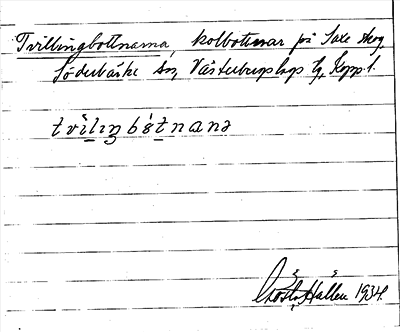 Tvillingbottnarna, kolbottnar på Sale skog,
Söderbärke sn, Västerbergslags tg, Kopp. l.
tvìlıŋbótnanə
Gösta Hallén 1934.